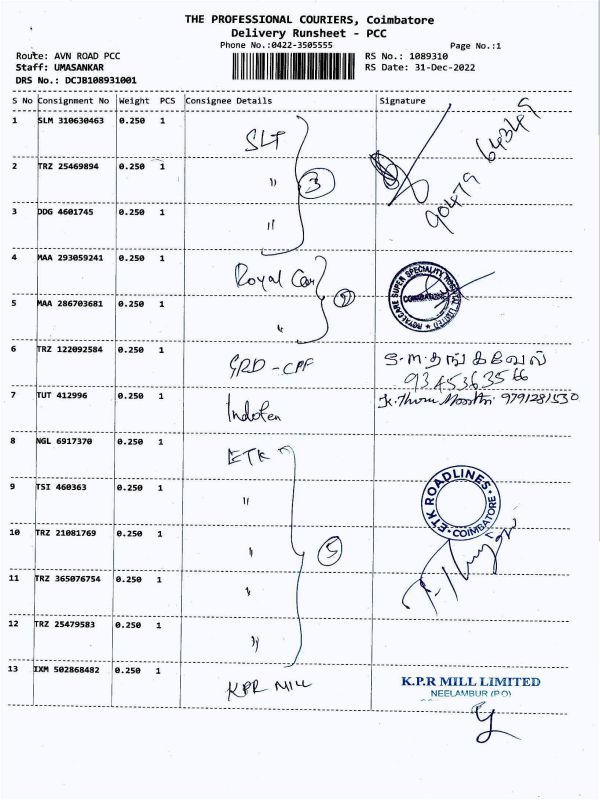 THE PROFESSIONAL COURIERS, Coimbatore
Delivery Runsheet - PCC
Phone No.:0422-3505555 Page No.:1
Route: AVN ROAD PCC RS No.: 1089310
Staff: UMASANKAR RS Date: 31-Dec-2022
DRS No.: DCJB108931001
S No Consignment No Weight PCS Consignee Details Signature
1 SLM 310630463 0.250 1 SLT
90479 64349
2 TRZ 25469894 0.250 1 " 3
3 DDG 4601745 0.250 1 "
4 MAA 293059241 0.250 1 Royal Care
ROYALCARE SUPER SPECIALITY HOSPITAL LIMITED
COIMBATORE
5 MAA 286703681 0.250 1 " 2
6 TRZ 122092584 0.250 1 GRD-CPF
9345363566
7 TUT 412996 0.250 1 9791281530
8 NGL 6917370 0.250 1 ETK
9 TSI 460363 0.250 1 "
ETK ROADLINES
COIMBATORE
10 TRZ 21081769 0.250 1 " 5
11 TRZ 365076754 0.250 1 "
12 TRZ 25479583 0.250 1 "
13 IXM 502868482 0.250 1 KPR MILL K.P.R MILL LIMITED
NEELAMBUR (PO)